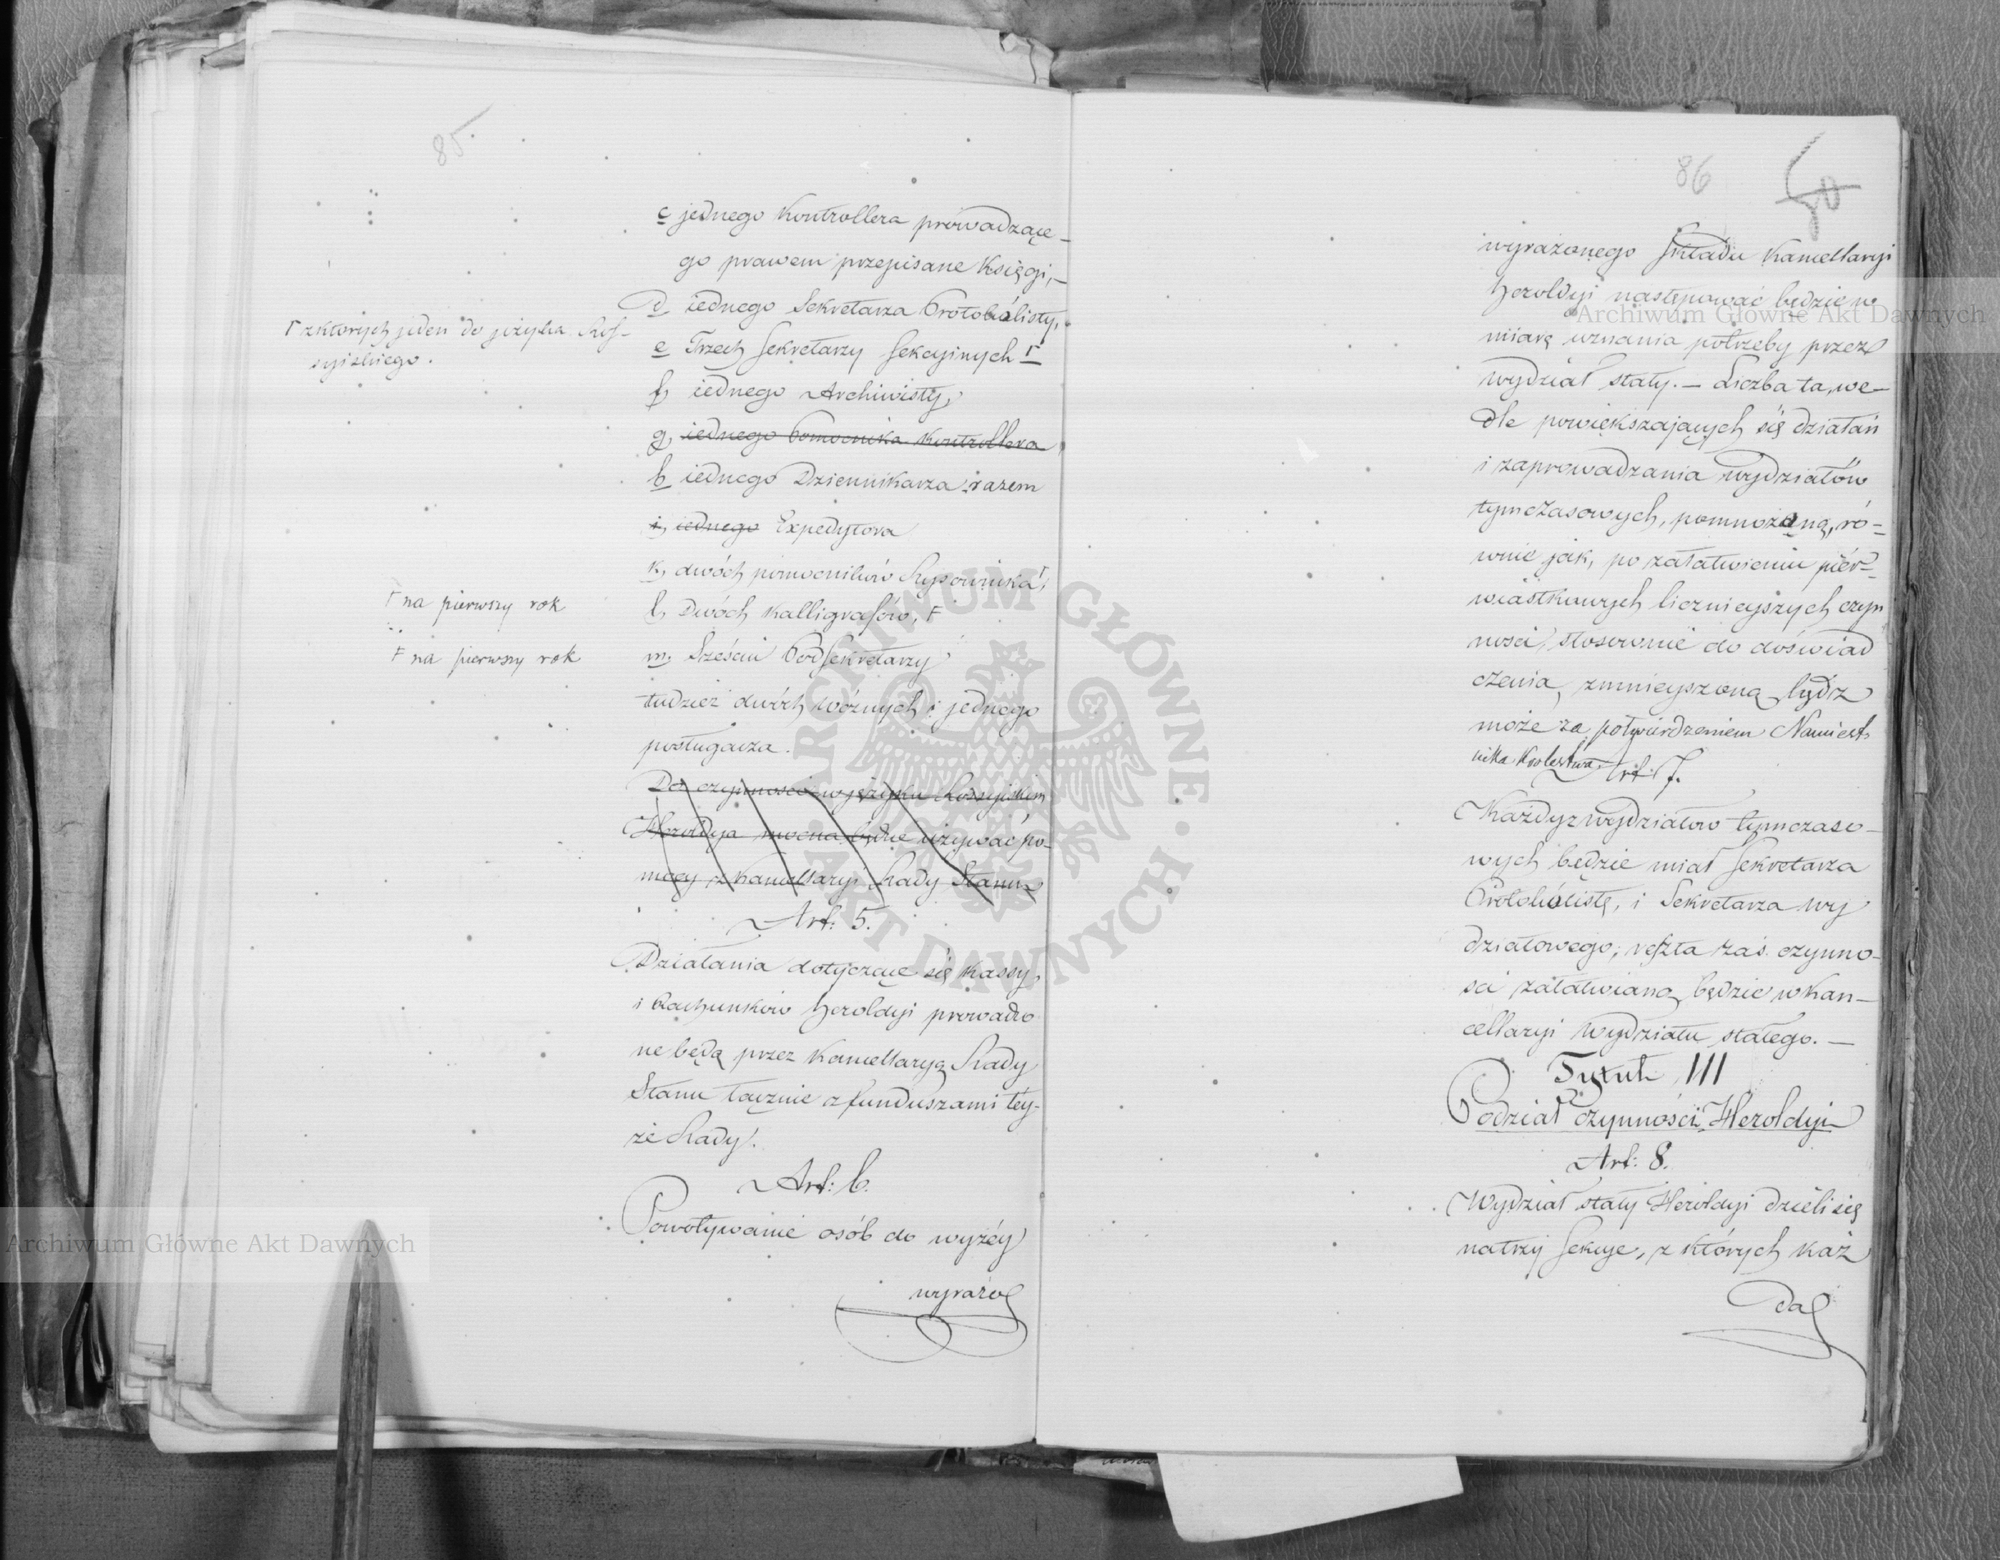 85
c jednego Kontrollera prowadzące-
go prawem przepisane Księgi,-
d iednego Sekretarza Protokólisty,
e Trzech Sekretarzy Sekcyinych
Γ z ktorych jeden do języka Ros-
syiskiego.
f, iednego Archiwisty,
g, iednego Pomocnika Kontrollera
h iednego Dziennikarza razem
i, iednego Expedytora
k, dwóch pomocników Rysownika
l, Dwóch Kalligrafów,
Γ na pierwszy rok
m. Sześciu Podsekretarzy
F na pierwszy rok
tudzież dwóch woźnych i jednego
posługacza.
Do czynności w języku Rossyiskim
Heroldya mocna będzie używać po-
mocy z Kancellaryi Rady Stanu
Art: 5.
Działania dotyczące się Kassy,
i Rachunków Heroldyi prowadzo
ne będą przez Kancellaryą Rady
Stanu łącznie z funduszami tey-
że Rady.
Art: 6.
Powoływanie osób do wyżéy
wyrażo
86
50
wyrażonego składu Kancellaryi
Heroldyi następować będzie w
miarę uznania potrzeby przez
wydział stały. - Liczba ta, we-
dle powiększających się działań
i zaprowadzania wydziałów
tymczasowych, pomnożoną, ró-
wnie jak, po załatwieniu pier-
wiastkowych licznieyszych czyn
ności, stosownie do doświad
czenia, zmnieyszoną bydz
może za potwierdzeniem Namiest-
nika Królestwa.
Art: 7.
Każdy z wydziałów tymczaso-
wych będzie miał Sekretarza
Protokólistę, i Sekretarza wy
działowego; reszta zaś czynno-
ści załatwianą będzie w Kan-
cellaryi Wydziału stałego. -
Tytuł III
Podział czynności Heroldyi
Art: 8.
Wydział stały Heroldyi dzieli się
na trzy Sekcye, z których każ
da
Archiwum Główne Akt Dawnych
Archiwum Główne Akt Dawnych
ARCHIWUM GŁÓWNE · AKT DAWNYCH ·